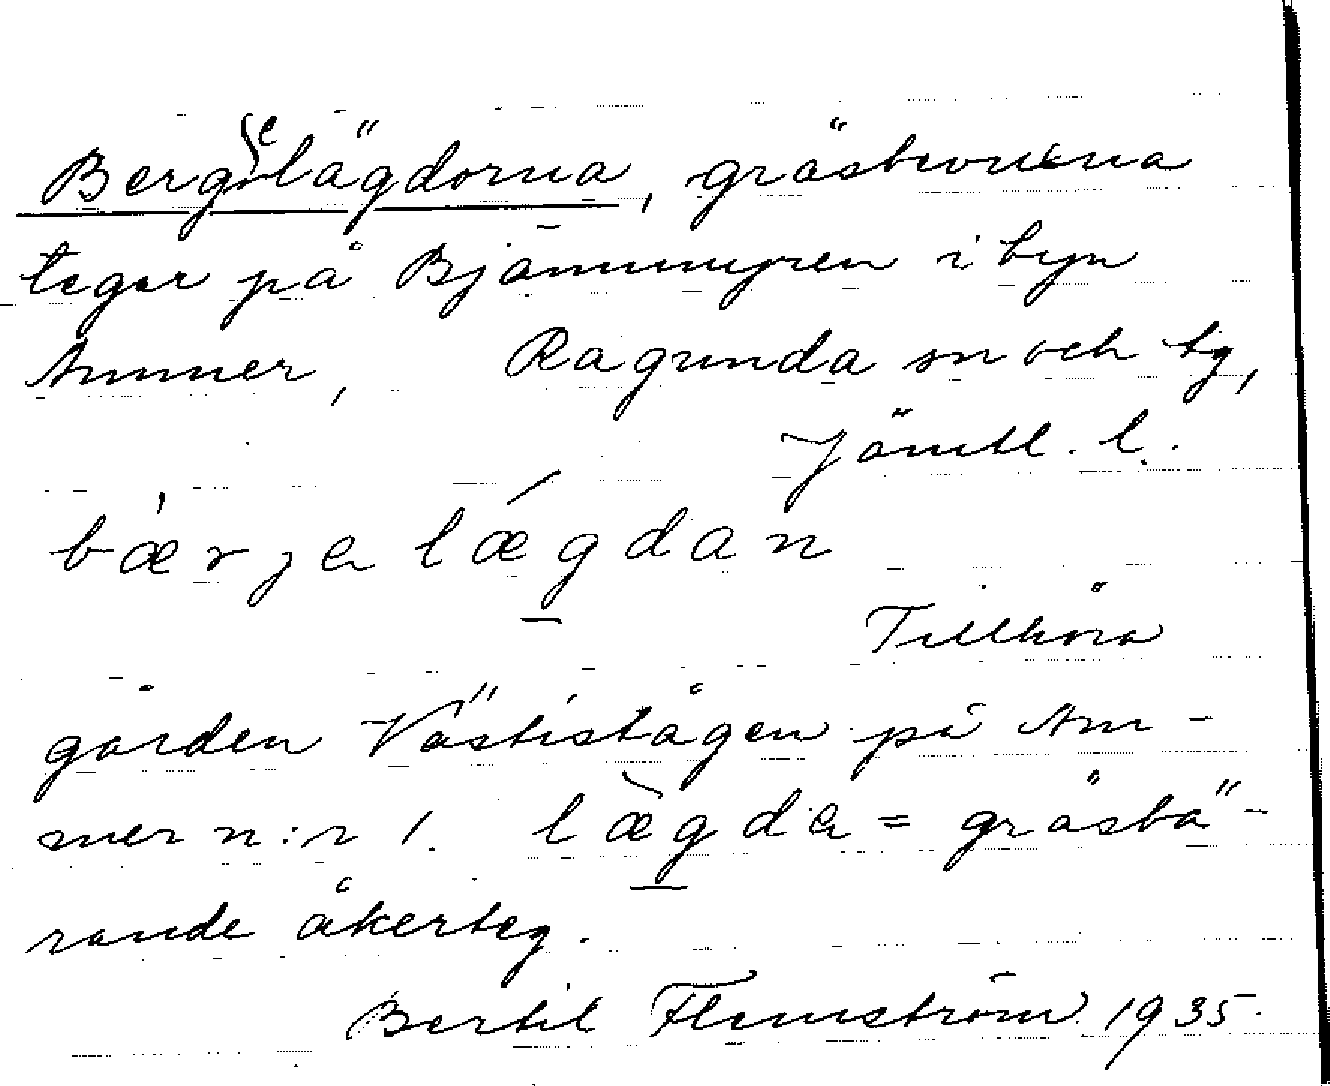 Bergelägdorna, gräsbevuxna
tegar på Bjännmyren i byn
Ammer, Ragunda sn och tg,
Jämtl. l.
bærjalægdan
Tillhöra
gården Västistågen på Am-
mer n:r 1. lægda = gräsbä-
rande åkerteg.
Bertil Flemström 1935.